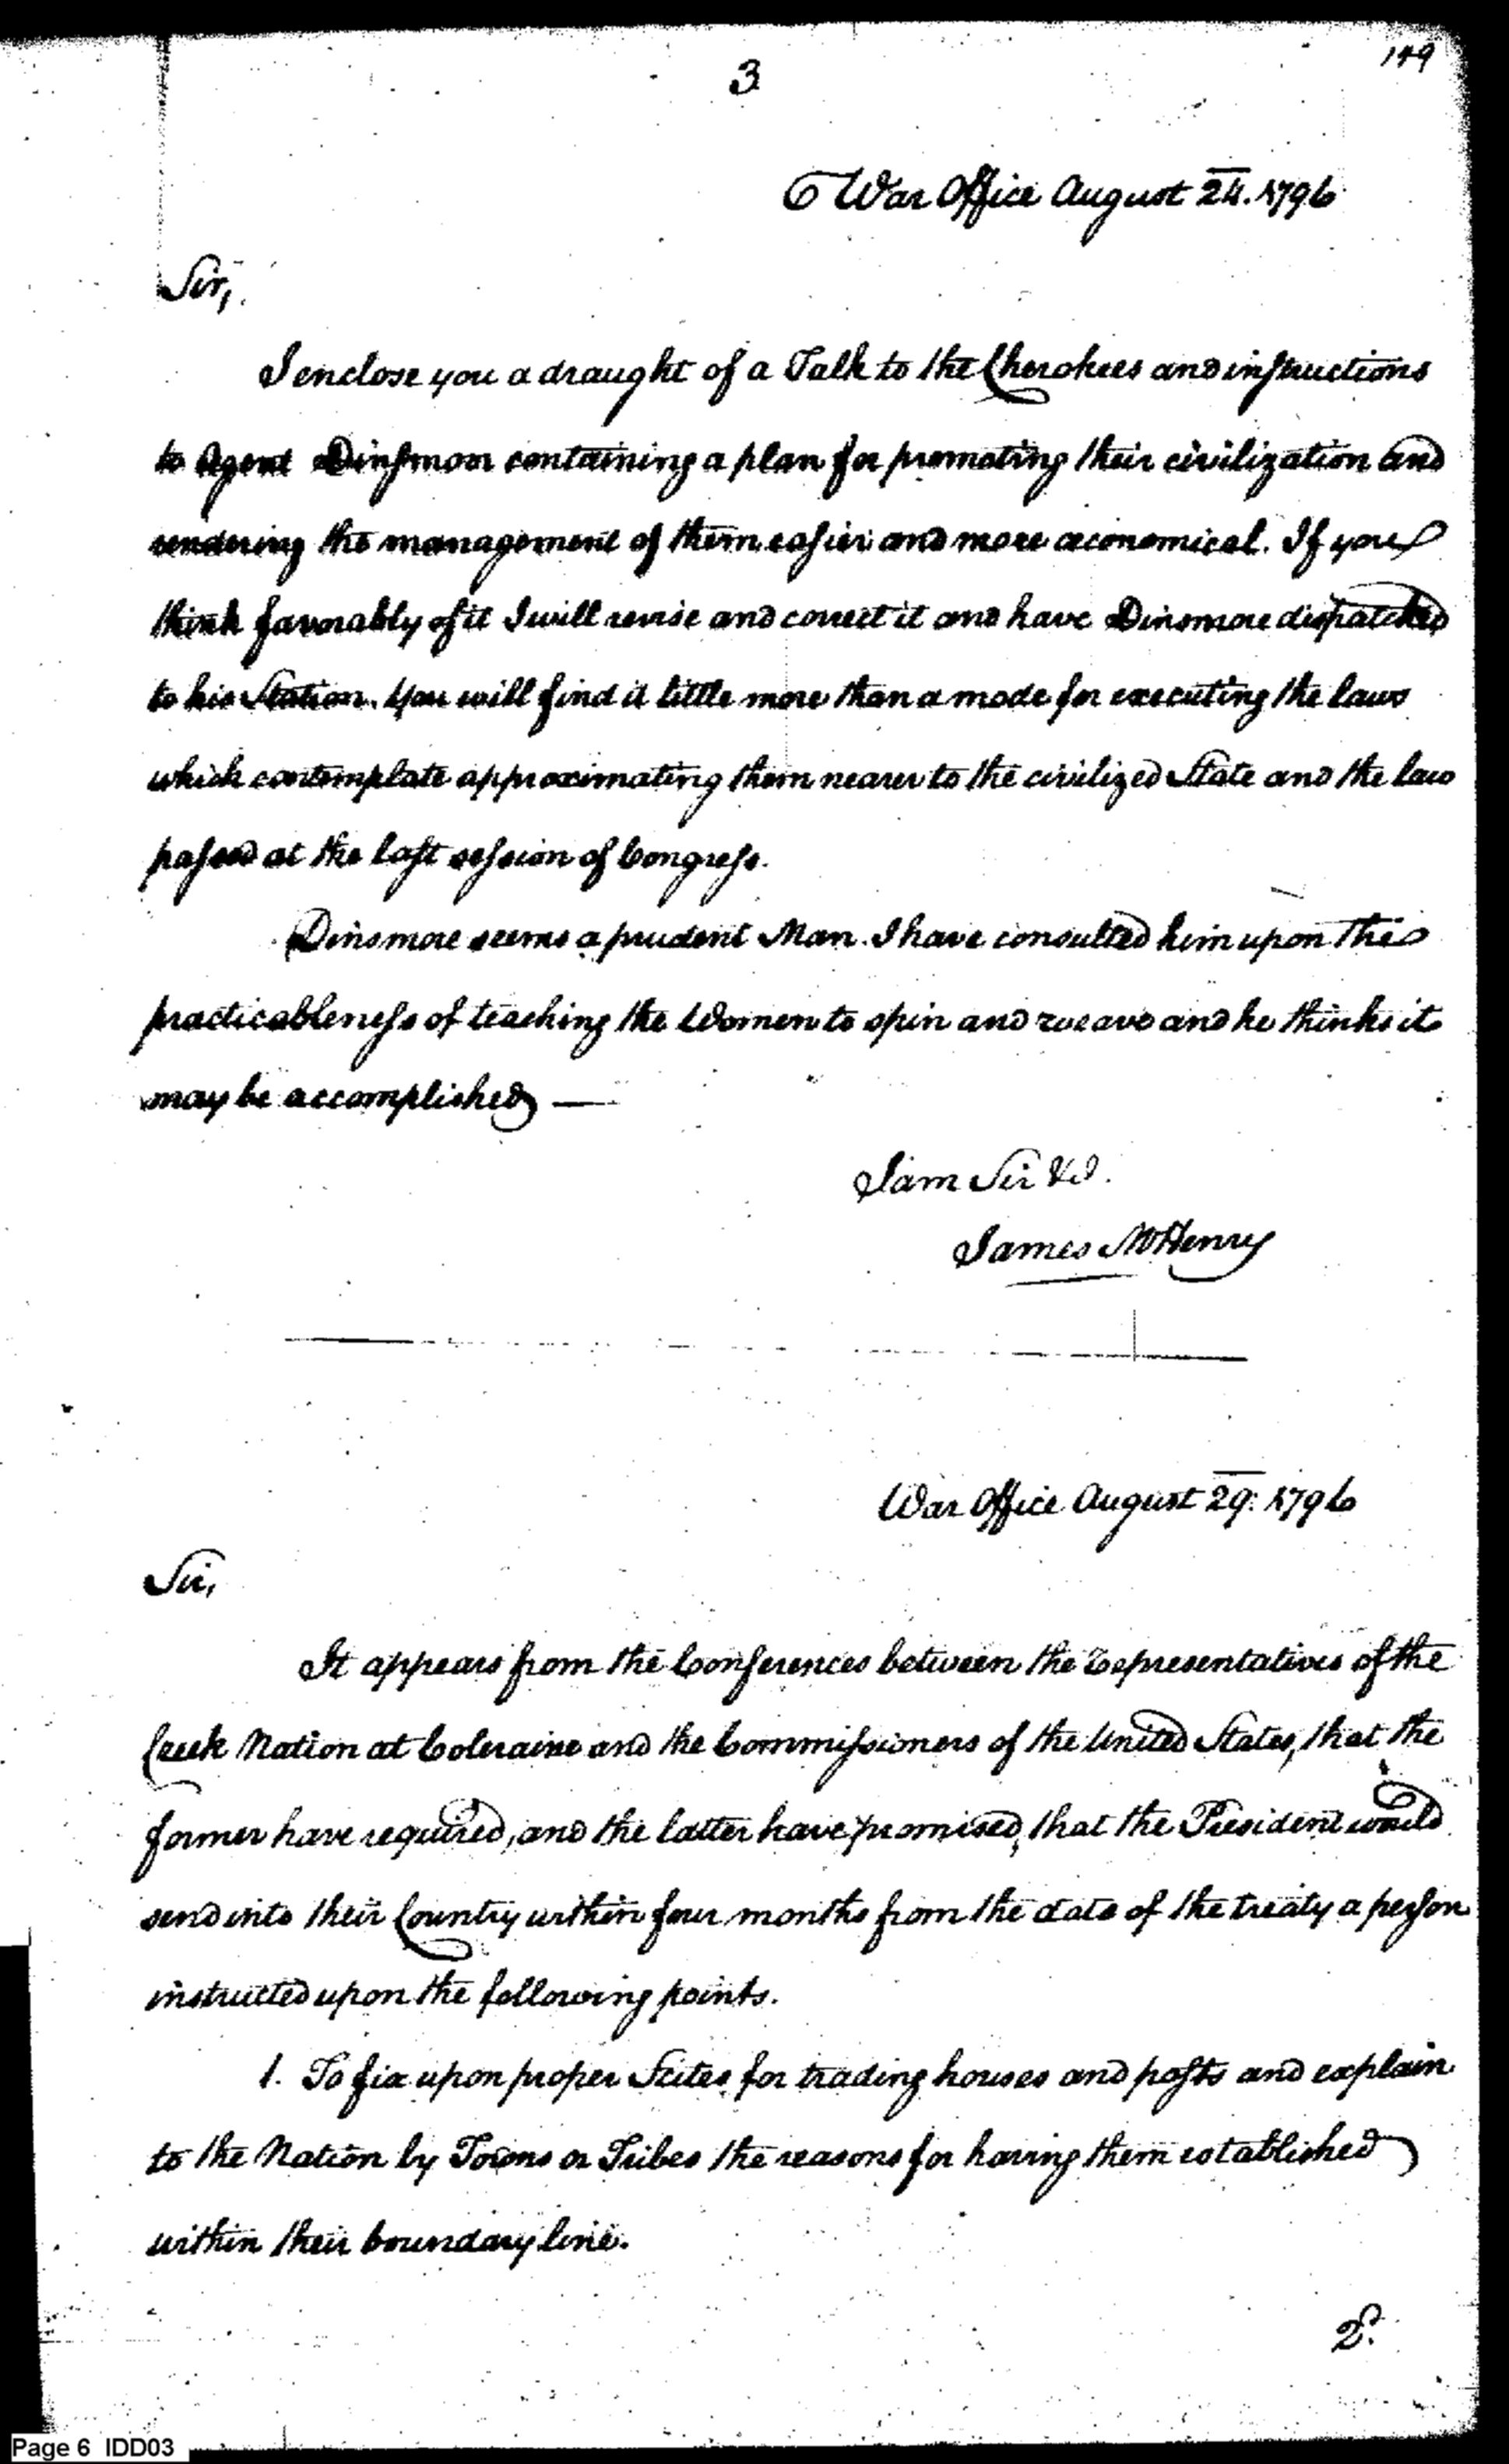 149
3
War Office August 24. 1796
Sir,
I enclose you a draught of a Talk to the Cherokees and instructions
to Agent Dinsmoor containing a plan for promoting their civilization and
rendering the management of them easier and more œconomical. If you
think favorably of it I will revise and correct it and have Dinsmore dispatched
to his Station. You will find it little more than a mode for executing the laws
which contemplate approximating them nearer to the civilized State and the law
passed at the last session of Congress.
Dinsmore seems a prudent Man. I have consulted him upon the
practicableness of teaching the Women to spin and weave and he thinks it
may be accomplished —
I am Sir &c.
James McHenry
War Office August 29. 1796
Sir,
It appears from the Conferences between the Representatives of the
Creek Nation at Coleraine and the Commissioners of the United States, that the
former have required, and the latter have promised, that the President would
send into their Country within four months from the date of the treaty a person
instructed upon the following points.
1. To fix upon proper Scites for trading houses and posts and explain
to the Nation by Towns or Tribes the reasons for having them established
within their boundary line.
2.
Page 6 IDD03